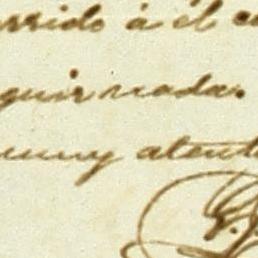 rrido á él
guir nada.
muy atent